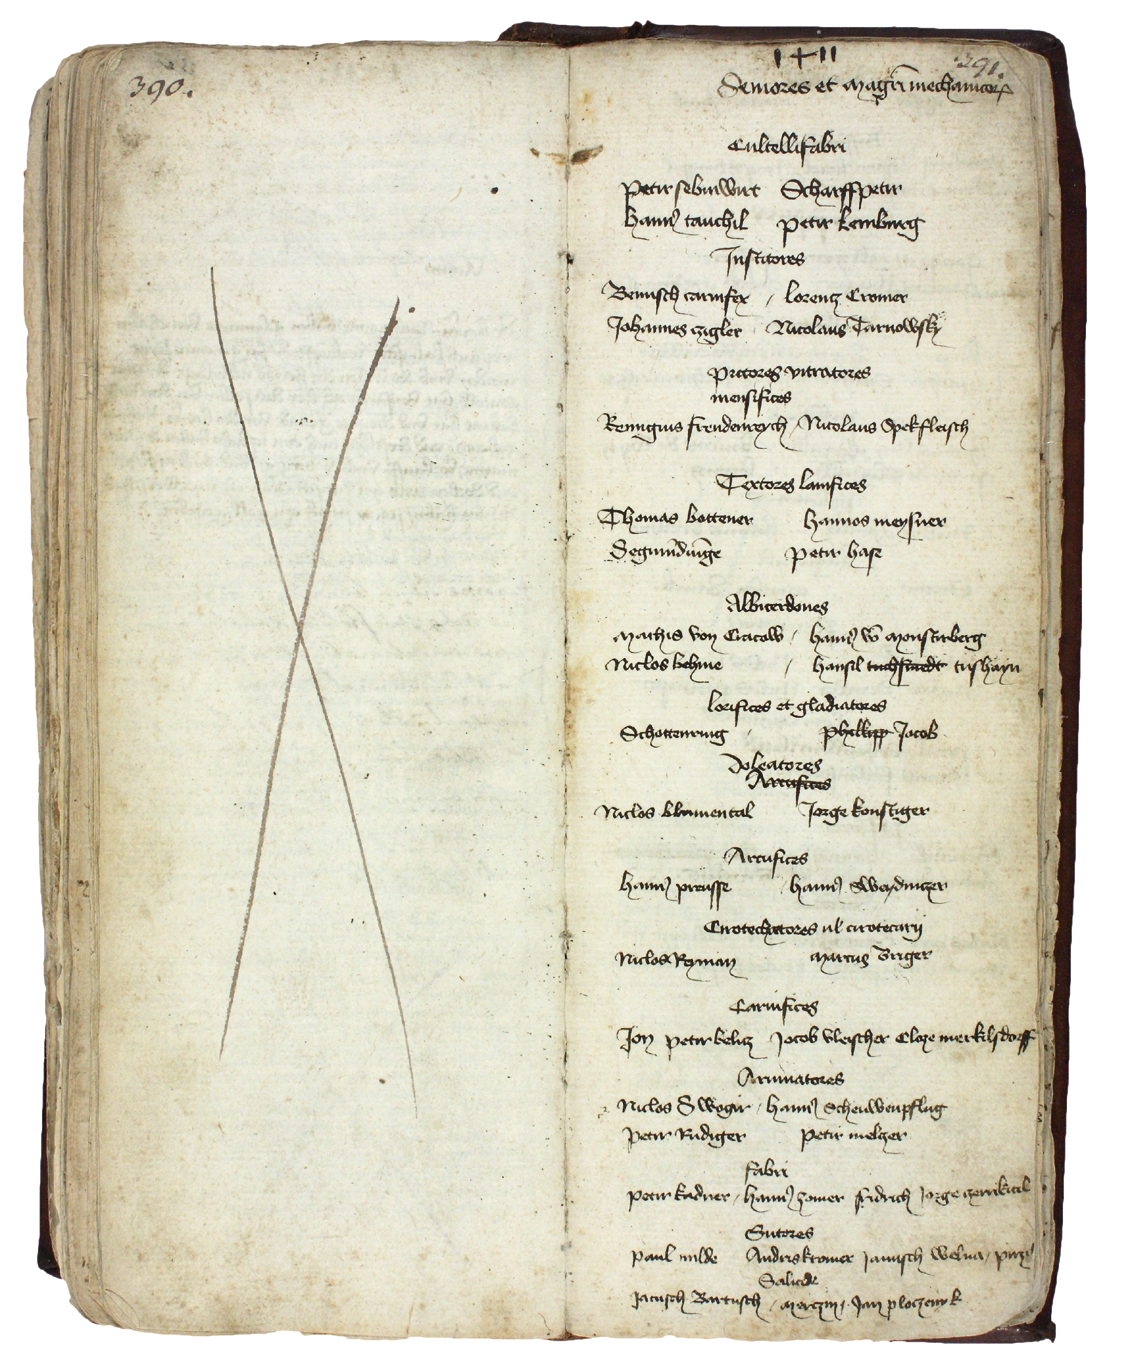 390.
1411
391.
Seniores et magri mechanicorum
Cultellifabri
Petir sebinwirt Scharffpetir
hanns tauchil petir Lemburg
Institores
Benisch carnifex / lorentz Cromer
Johannes czigler Nicolaus Tarnowsky
pictores vitratores
mensifices
Remigius freudenreych / Nicolaus Spekfleisch
Textores lanifices
Thomas bottener hannos meysner
petir hase
Albicerdones
Mathis von Cracow / hanns vo monstirberg
Niclos behme / hansil
lorifices et gladiatores
Schottenring / phillipp Jocob
Doleatores
Arcufices
Niclos blumental Jorge konstiger
Arcufices
hanns prewsse / hanns Sweydniczer
Cirotechatores ul cirotecarij
Niclos Reyman marcus Briger
Carnifices
Jon petir belicz Jocob vleischer Cloze merkilsdorff
Aruinatores
Niclos Swogir / hanns Scheuwenpflug
Petir Rudiger Petir melczer
fabri
petir kadner / hanns zomer fridrich Jorge
Sutores
paul milde Andris kromer Janusch Welna /
Salicide
Jacusch Bartusch / merczin / Jan ploczenik